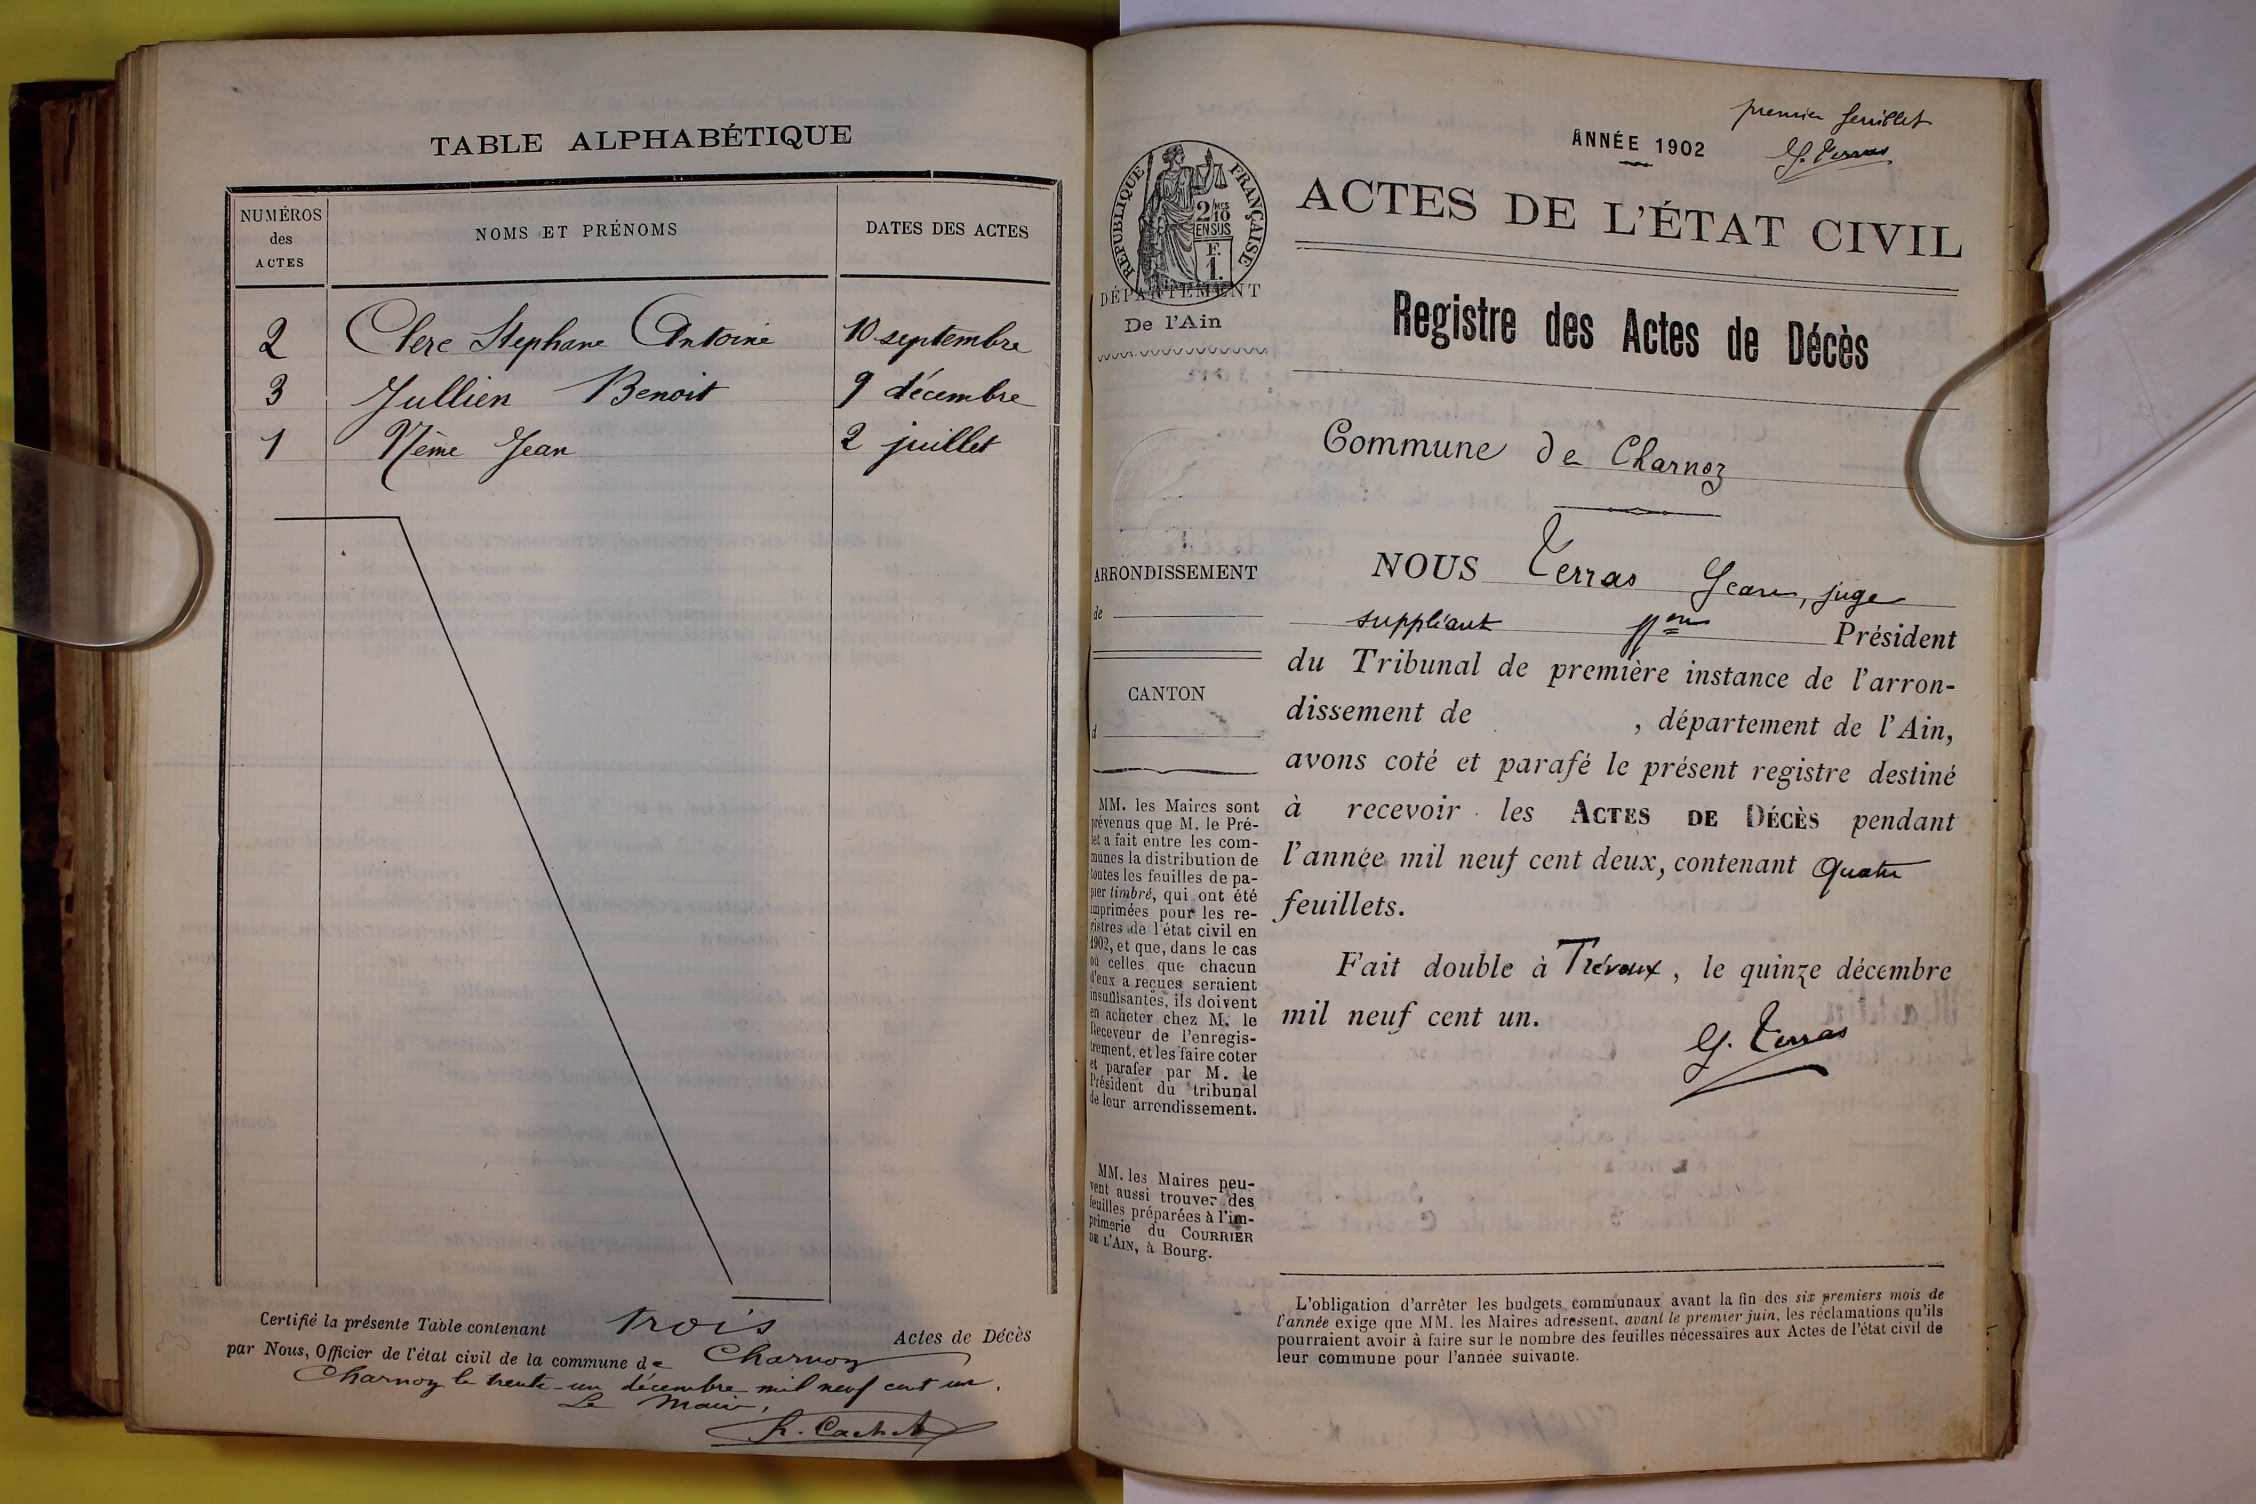 TABLE ALPHABÉTIQUE
NUMÉROS
des
ACTES
NOMS ET PRÉNOMS
DATES DES ACTES
2 Clerc Stephane Antoine 10 septembre
3 Jullien Benoit 9 décembre
1 Nême Jean 2 juillet
Certifié la présente Table contenant trois Actes de Décès
par Nous, Officier de l'état civil de la commune de Charnoz
Charnoz le trente-un décembre mil neuf cent un.
Le Maire,
Cachet
premier feuillet
ANNÉE 1902
G. Terras
ACTES DE L'ÉTAT CIVIL
RÉPUBLIQUE FRANÇAISE
2/10 MES
EN SUS
F.
1.
DÉPARTEMENT
De l'Ain
Registre des Actes de Décès
Commune de Charnoz
ARRONDISSEMENT
de
CANTON
d
MM. les Maires sont
prévenus que M. le Pré-
fet a fait entre les com-
munes la distribution de
toutes les feuilles de pa-
pier timbré, qui ont été
imprimées pour les re-
gistres de l'état civil en
1902, et que, dans le cas
où celles que chacun
d'eux a reçues seraient
insuffisantes, ils doivent
en acheter chez M. le
Receveur de l'enregis-
trement, et les faire coter
et parafer par M. le
Président du tribunal
de leur arrondissement.
MM. les Maires peu-
vent aussi trouver des
feuilles préparées à l'im-
primerie du COURRIER
DE L'AIN, à Bourg.
NOUS Terras Jean, juge
suppléant ppon Président
du Tribunal de première instance de l'arron-
dissement de , département de l'Ain,
avons coté et parafé le présent registre destiné
à recevoir les ACTES DE DÉCÈS pendant
l'année mil neuf cent deux, contenant quatre
feuillets.
Fait double à Trévoux, le quinze décembre
mil neuf cent un.
G. Terras
L'obligation d'arrêter les budgets communaux avant la fin des six premiers mois de
l'année exige que MM. les Maires adressent, avant le premier juin, les réclamations qu'ils
pourraient avoir à faire sur le nombre des feuilles nécessaires aux Actes de l'état civil de
leur commune pour l'année suivante.